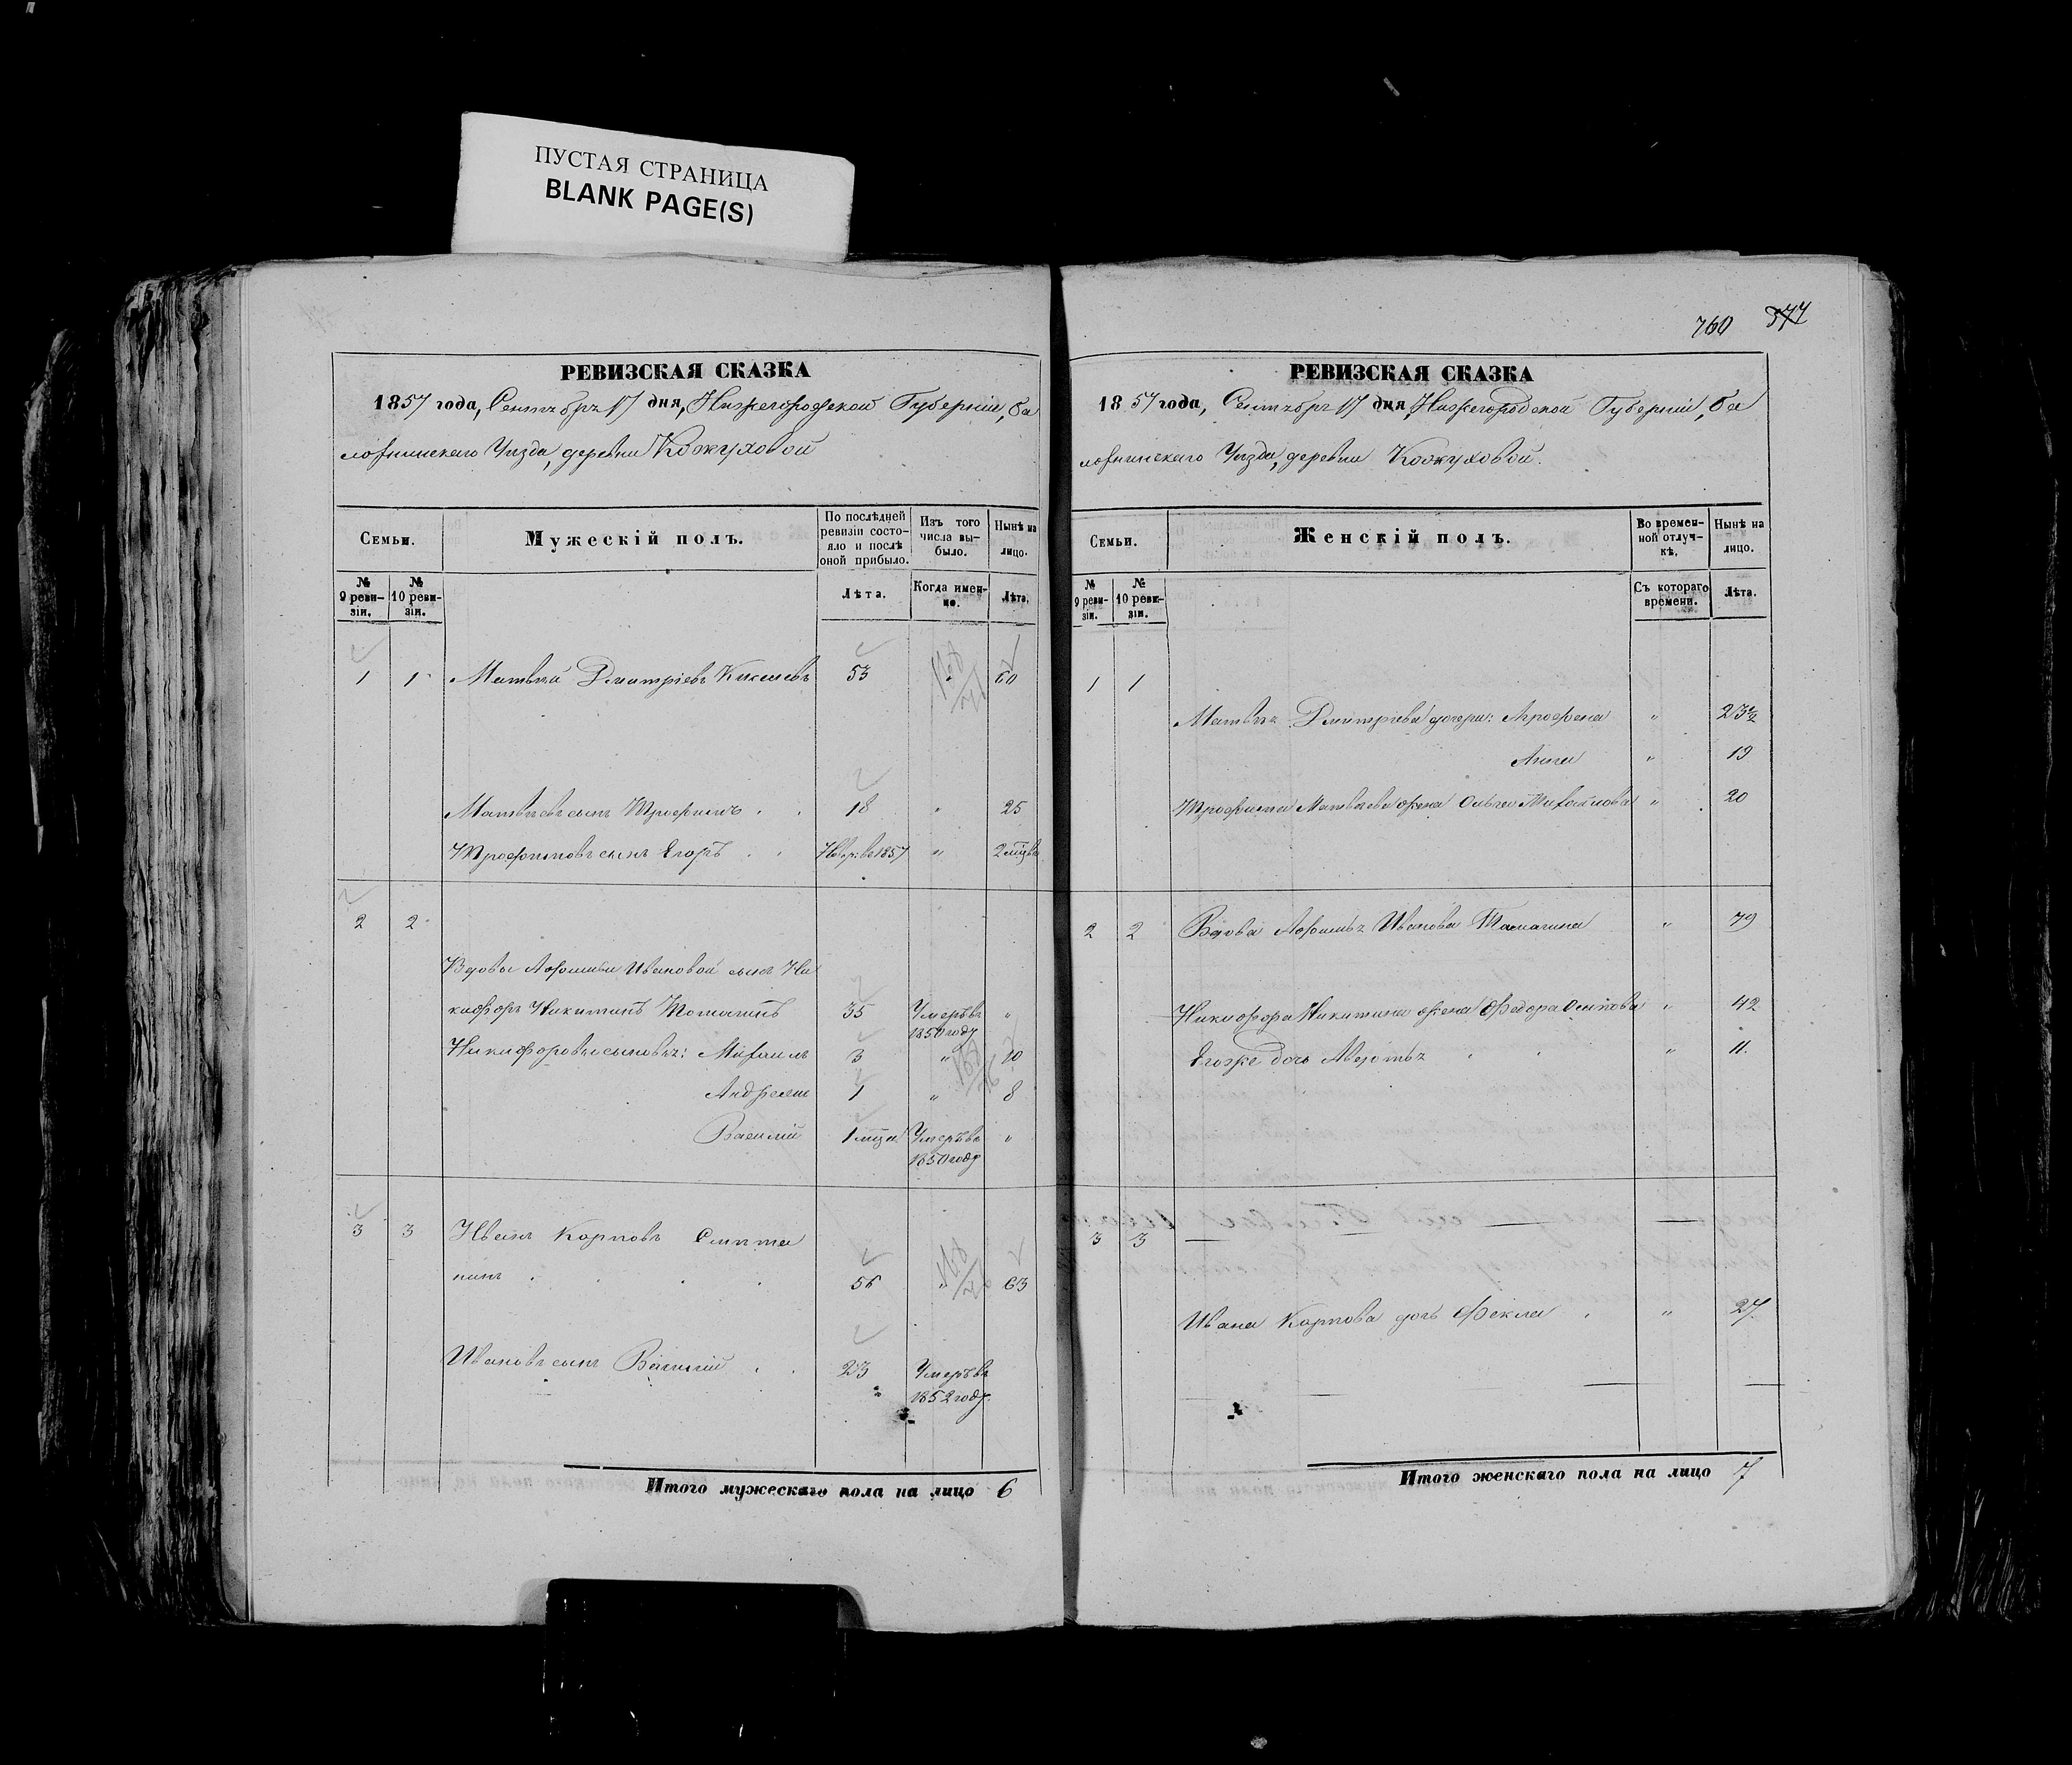 ПУСТАЯ СТРАНИЦА
BLANK PAGE(S)
РЕВИЗСКАЯ СКАЗКА
1857 года, Сентября 17 дня, Нижегородской Губерніи, Ба
лахнинскаго Уѣзда, деревни Кожуховой
Семьи.
Мужескій полъ.
По послѣдней ревизіи состо-
яло и послѣ оной прибыло.
Изъ того числа вы-
было.
Нынѣ на лицо.
№ 9 реви-
зіи.
№ 10 реви-
зіи.
Лѣта.
Когда имен-
но.
Лѣта.
1 1 Матвѣй Дмитріевъ 53 " 60
Матвѣевъ сынъ Трофимъ 18 " 25
Трофимовъ сынъ Егоръ 1857 " 2 мѣсяца
2 2
Вдовы Ивановой сынъ Ни
кифоръ Никитинъ 35 Умеръ въ 1850 году "
Никифоровы сыновья: Михаилъ 3 " 10
Андреянъ 1 " 8
Василій 1 мца Умеръ въ 1850 году "
3 3 Иванъ Карповъ
нинъ 56 " 63
Ивановъ сынъ Василій 23 Умеръ въ
1852 году.
Итого мужескаго пола на лицо 6
760 377
РЕВИЗСКАЯ СКАЗКА
1857 года, Сентября 17 дня, Нижегородской Губерніи, Ба
лахнинскаго Уѣзда, деревни Кожуховой.
Семьи.
Женскій полъ.
Во времен-
ной отлуч-
кѣ.
Нынѣ на лицо.
№ 9 реви-
зіи.
№ 10 реви-
зіи.
Съ котораго времени.
Лѣта.
1 1
Матвѣя Дмитріева дочери: " 23½
Анна " 19
Трофима Матвѣева жена Ольга Михайлова " 20
2 2 Вдова Иванова " 79
Никифора Никитина жена Федора Осипова " 42
Его же дочь Авдотья " 11.
3 3
Ивана Карпова дочь Фекла " 27.
Итого женскаго пола на лицо 7